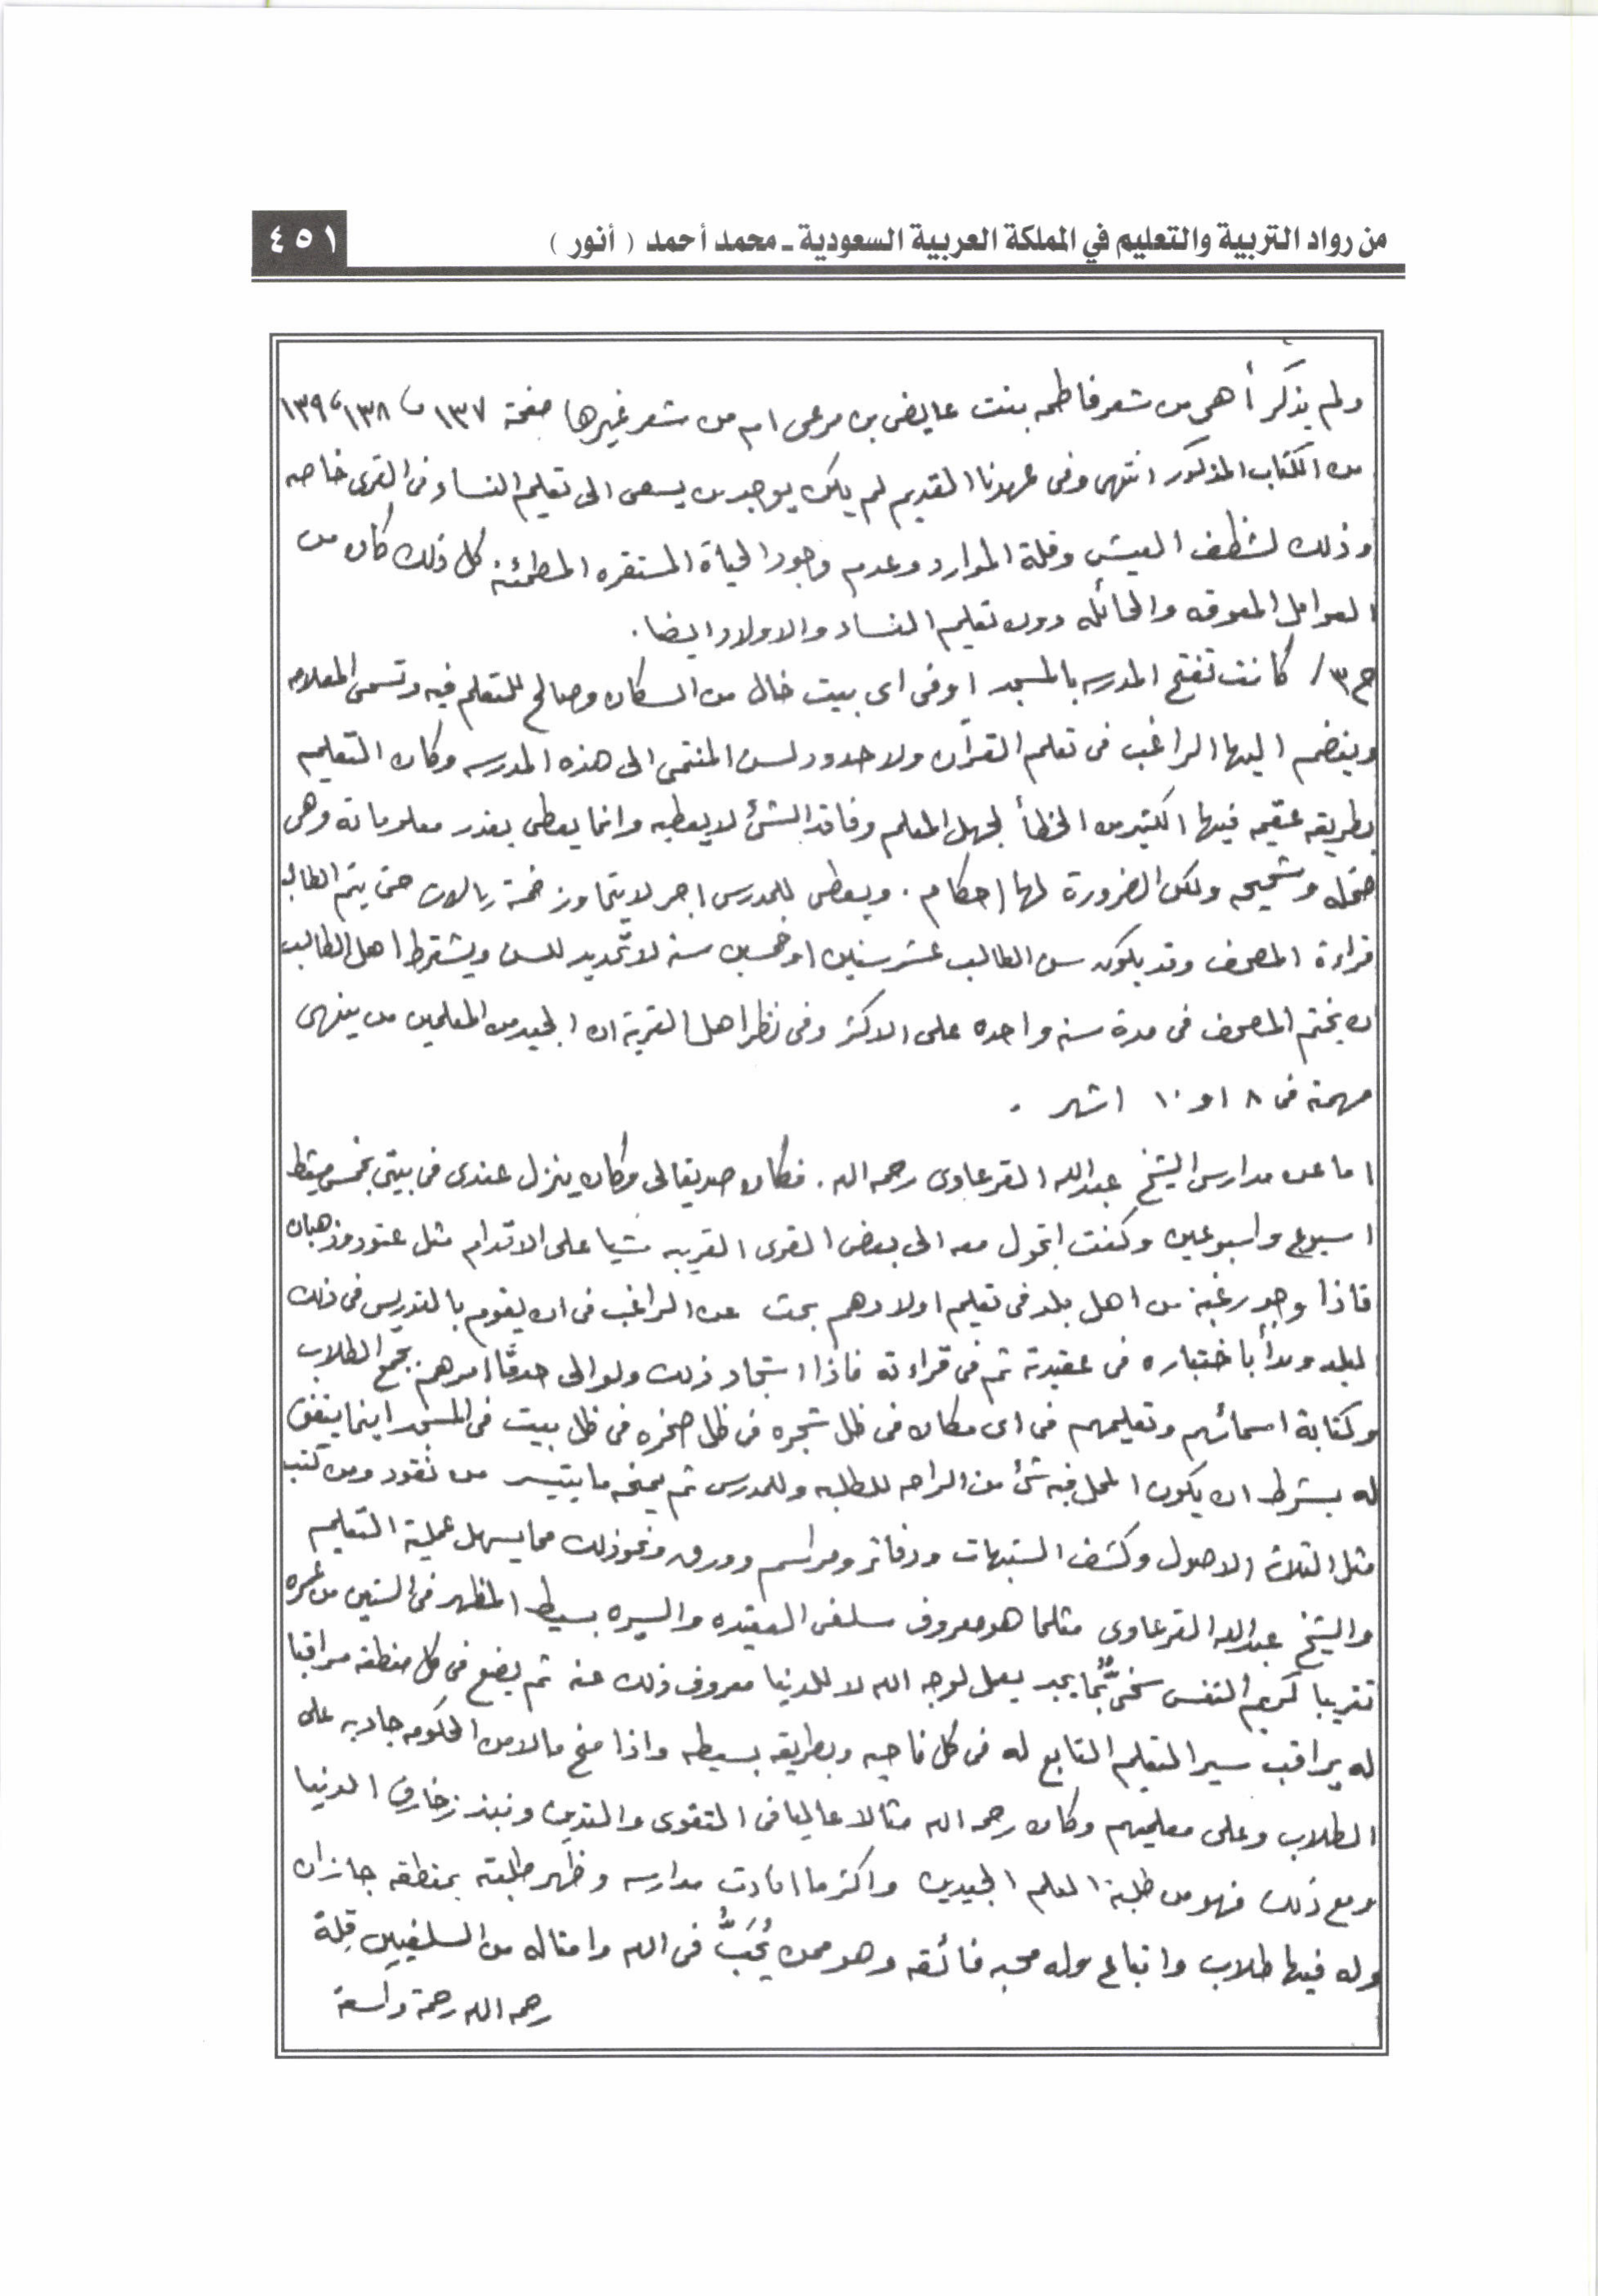 من رواد التربية والتعليم في المملكة العربية السعودية ـ محمد أحمد ( أنور )
٤٥١
ولم يذكر أهى من شعر فاطمه بنت عايض بن مرعى ام من شعر غيرها صفحة ١٣٧ ، ١٣٨ ، ١٣٩
من الكتاب المذكور انتهى وفى عهدنا القديم لم يكن يوجد من يسعى الى تعليم النساء فى القرى خاصه
وذلك لشظف العيش وقلة الموارد وعدم وجود الحياة المستقره المطمئنه كل ذلك كان من
العوامل المعوقه والحائله دون تعليم النساء والاولاد ايضا.
ج٣/ كانت تفتح المدرسه بالمسجد اوفى اى بيت خال من السكان وصالح للتعلم فيه وتسمى المعلامه
وينضم اليها الراغب فى تعلم القرآن ولا حدود لسن المنتمى الى هذه المدرسه وكان التعليم
بطريقه عقيمه فيها الكثير من الخطأ لجهل المعلم وفاقد الشئ لا يعطيه وانما يعطى بقدر معلوماته وهى
ضحله وشحيحه ولكن الضرورة لها احكام . ويعطى للمدرس اجر لا يتجاوز خمسة ريالات حتى يتم الطالب
قراءة المصحف وقد يكون سن الطالب عشر سنين او خمسين سنه لا تحديد للسن ويشترط اهل الطالب
ان يختم المصحف فى مدة سنه واحده على الاكثر وفى نظر اهل القرية ان الجيد من المعلمين من ينهى
مهمته فى ٨ او ١٠ اشهر .
اما عن مدارس الشيخ عبدالله القرعاوى رحمه الله . فكان صديقا لى وكان ينزل عندى فى بيتى بخميس مشيط
اسبوع واسبوعين وكنت اتجول معه الى بعض القرى القريبه مشيا على الاقدام مثل عتود وذهبان
فاذا وجد رغبة من اهل بلد فى تعليم اولادهم بحث عن الراغب فى ان يقوم بالتدريس فى ذلك
البلد وبدأ باختباره فى عقيدته ثم فى قراءته فاذا استجاد ذلك ولو الى حد ما امرهم بجمع الطلاب
وكتابة اسمائهم وتعليمهم فى اى مكان فى ظل شجره فى ظل صخره فى ظل بيت فى المسجد اينما يتفق
له بشرط ان يكون المحل فيه شئ من الراحه للطلبه وللمدرس ثم يمنحه ما يتيسر من نقود ومن كتب
مثل الثلاثة الاصول وكشف الشبهات ودفاتر ومراسم وورق ونحو ذلك مما يسهل عملية التعليم
والشيخ عبدالله القرعاوى مثلما هو معروف سلفى العقيده والسيره بسيط المظهر فى الستين من عمره
تقريبا كريم النفس سخىٌّ بما يجد يعمل لوجه الله لا للدنيا معروف ذلك عنه ثم يضع فى كل منطقه مراقبا
له يراقب سير التعليم التابع له فى كل ناحيه وبطريقه بسيطه واذا منح مالا من الحكومه جاد به على
الطلاب وعلى معلميهم وكان رحمه الله مثالا عاليا فى التقوى والتدين ونبذ زخارف الدنيا
ومع ذلك فهو من طلبة العلم الجيدين واكثر ما افادت مدارسه وظهر طلبته بمنطقه جازان
وله فيها طلاب واتباع وله محبه فائقه وهو ممن يُحَبُّ فى الله وامثاله من السلفيين قِلة
رحمه الله رحمة واسعة